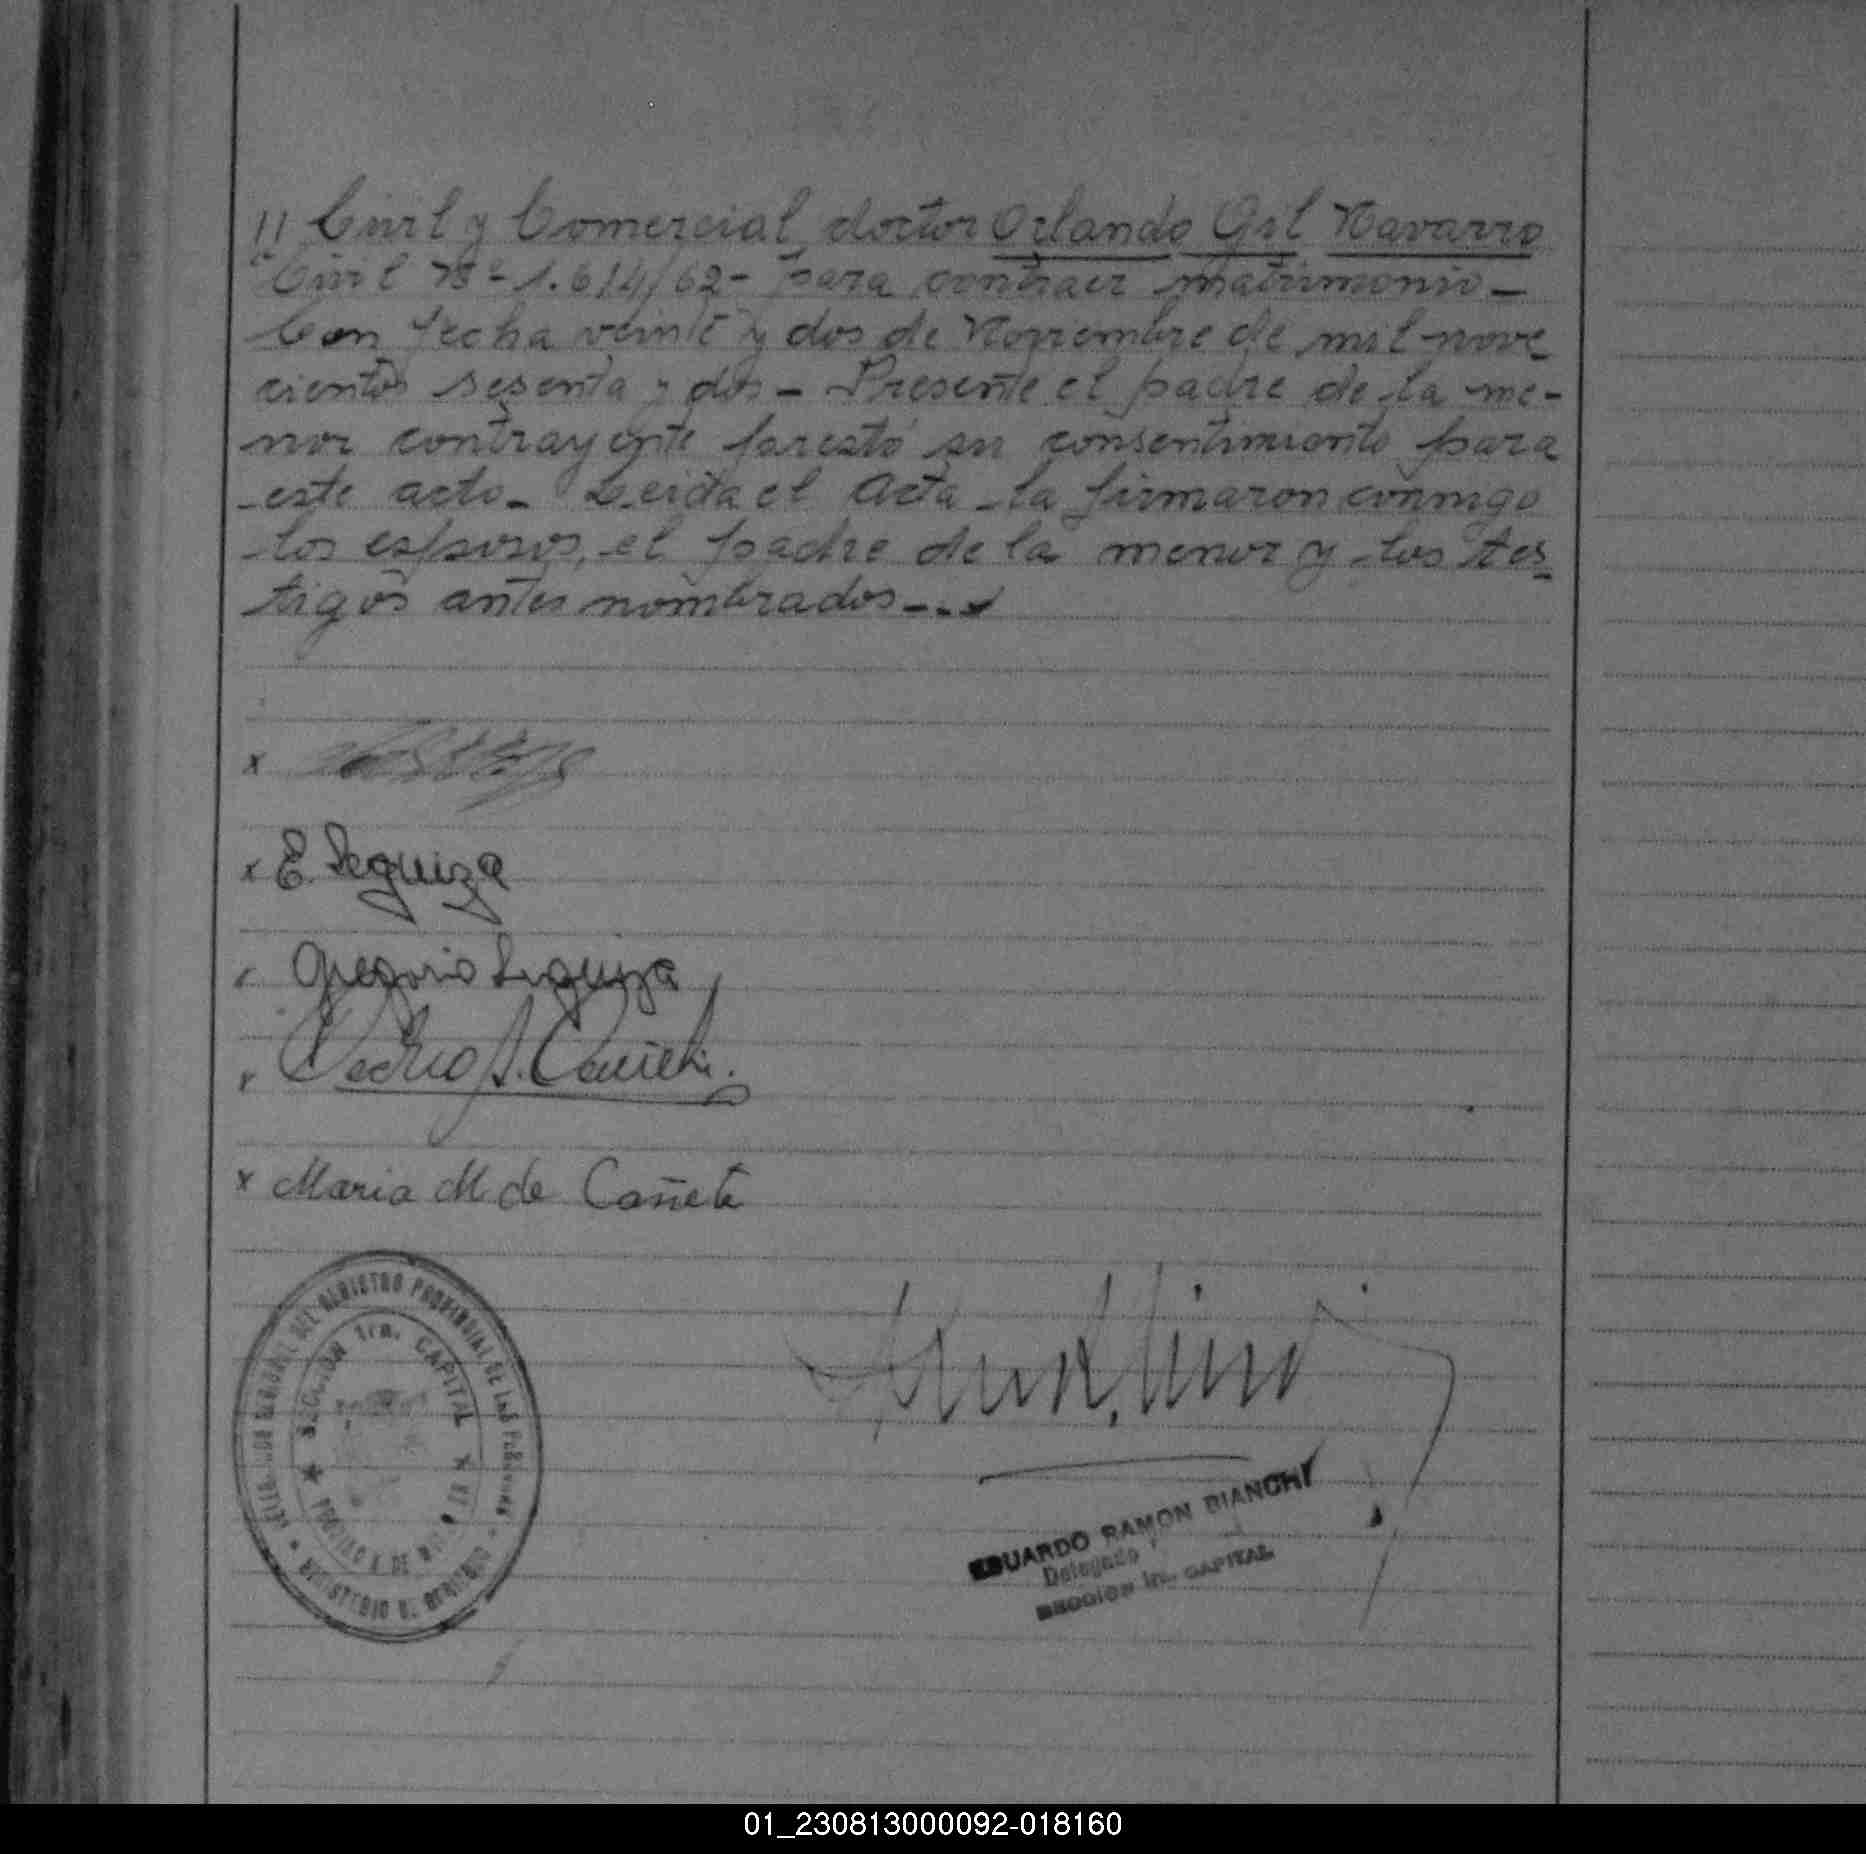 // Civil y Comercial, doctor Orlando Gil Navarro
Civil Nº 1.614/62 - para contraer matrimonio -
Con fecha veinte y dos de Noviembre de mil nove
cientos sesenta y dos - Presente el padre de la me-
nor contrayente prestó su consentimiento para
este acto - Leida el Acta la firmaron conmigo
los esposos, el padre de la menor y los tes
tigos antes nombrados - - -
x
x E. Seguiza
Gregorio Seguiza
x Pedro
x Maria M. de Cañete
DEL REGISTRO PROVINCIAL DE LAS PERSONAS
SECCION 1ra. CAPITAL
MINISTERIO DE GOBIERNO
EDUARDO RAMON BIANCHI
Delegado
SECCION 1ra. CAPITAL
01_230813000092-018160